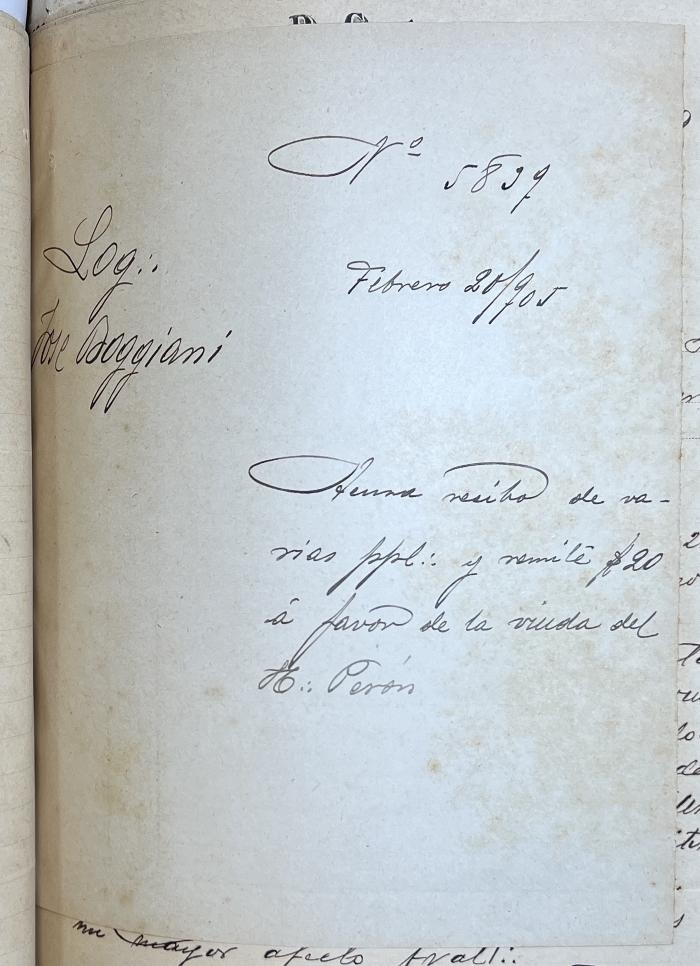 Nº 5839
Log∴
Jose Boggiani
Febrero 20/905
Acusa recibo de va-
rias ppl∴ y remite $20
á favor de la viuda del
H∴ Perón
mayor afecto frat∴